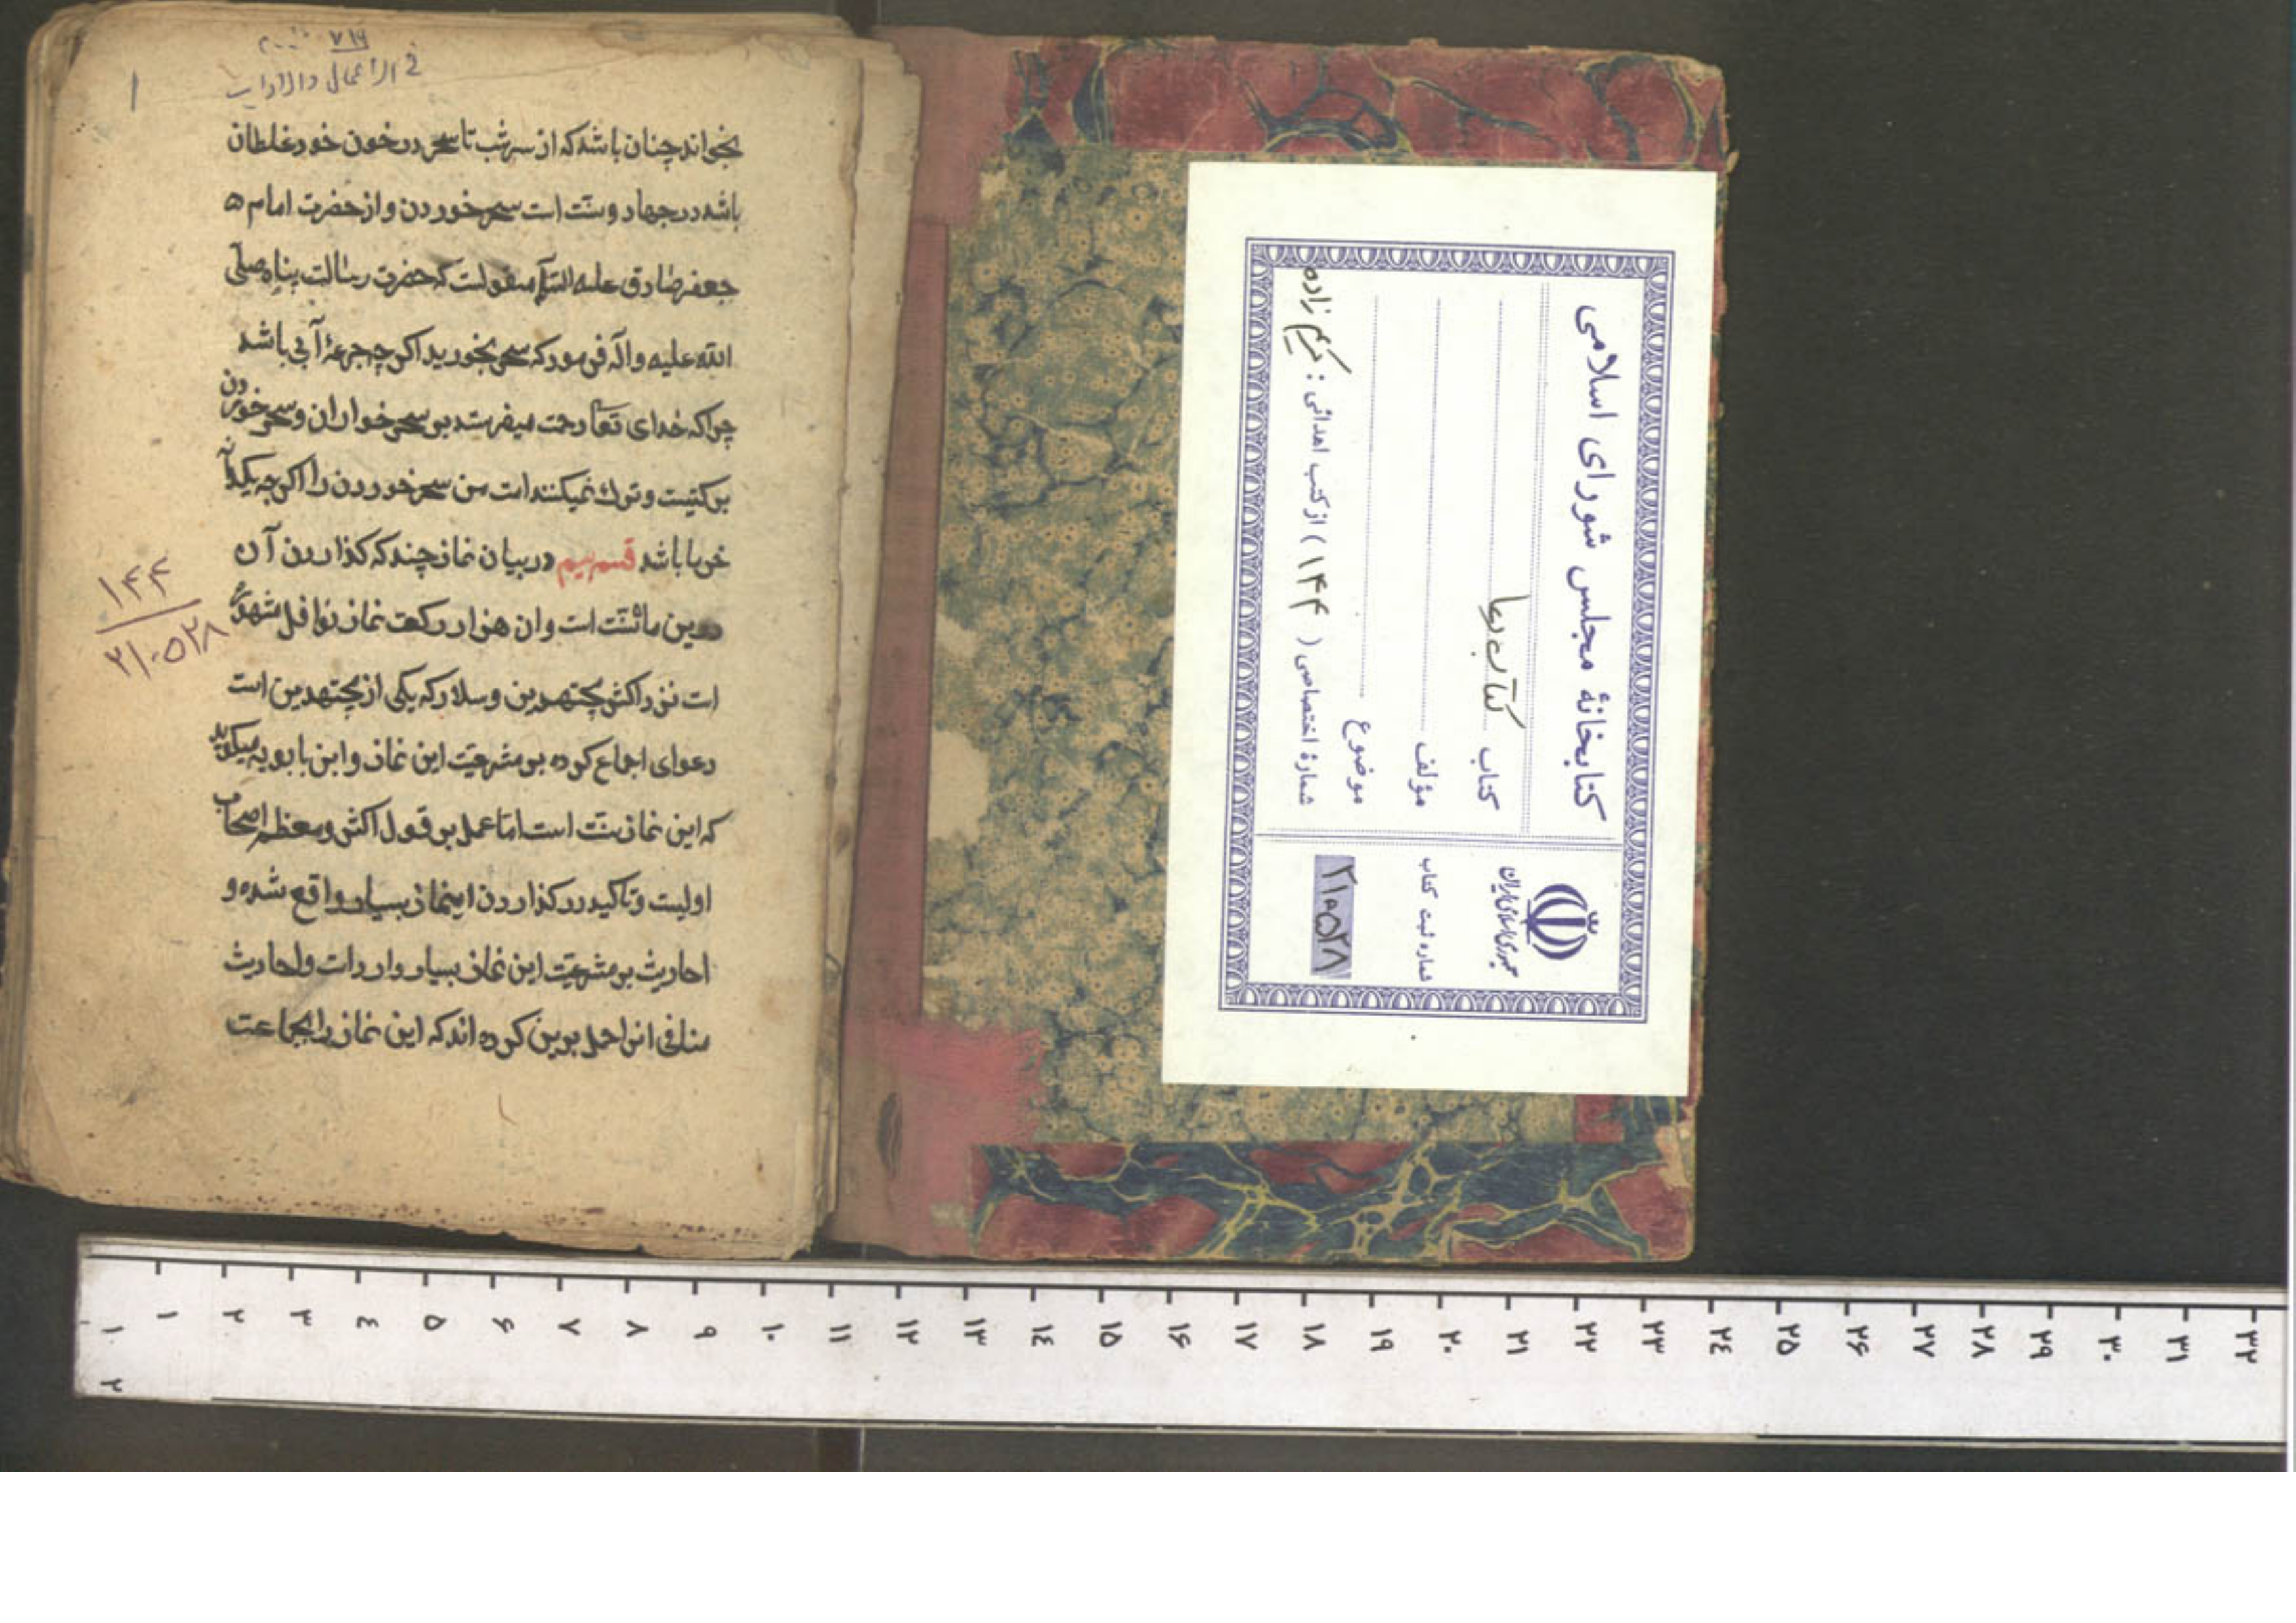 في الاعمال والاداب
۱
بخواند چنان باشد که از سر شب تا سحر در خون خود غلطان
باشد در جهاد و سنت است سحر خوردن و از حضرت امام
جعفر صادق علیه السلام منقولست که حضرت رسالت پناه صلی
الله علیه و اله فرمود که سحر بخورید اگر چه جرعهٔ آبی باشد
چرا که خدای تعا رحمت میفرستد بر سحر خواران و سحر خوردن
برکتیست و ترک نمیکنند امت من سحر خوردن را اگر چه یکدانه
خرما باشد قسم سیم در بیان نماز چند که گذاردن آن
درین ماه سنت است وان هزار رکعت نماز نوافل مشهور
است نزد اکثر مجتهدین و سلار که یکی از مجتهدین است
دعوای اجماع کرده بر مشرعیت این نماز و ابن بابویه میگوید
که این نماز سنت است اما عمل بر قول اکثر و معظم اصحاب
اولیست و تاکید در گذاردن اینماز بسیار واقع شده و
احادیث بر مشرعیت این نماز بسیار وارداست و احادیث
منافی انرا حمل برین کرده اند که این نماز را بجماعت
۱۴۴
۲۱۰۵۳۸
کتابخانهٔ مجلس شورای اسلامی
کتاب کتاب دعا
مؤلف
موضوع
شمارهٔ اختصاصی ( ۱۴۴ ) از کتب اهدائی : کریم زاده
جمهوری اسلامی ایران
شماره ثبت کتاب
۲۱۰۵۳۸
۱ ۲ ۳ ٤ ۵ ۶ ۷ ۸ ۹ ۱۰ ۱۱ ۱۲ ۱۳ ۱٤ ۱۵ ۱۶ ۱۷ ۱۸ ۱۹ ۲۰ ۲۱ ۲۲ ۲۳ ۲٤ ۲۵ ۲۶ ۲۷ ۲۸ ۲۹ ۳۰ ۳۱ ۳۲
۱
۲